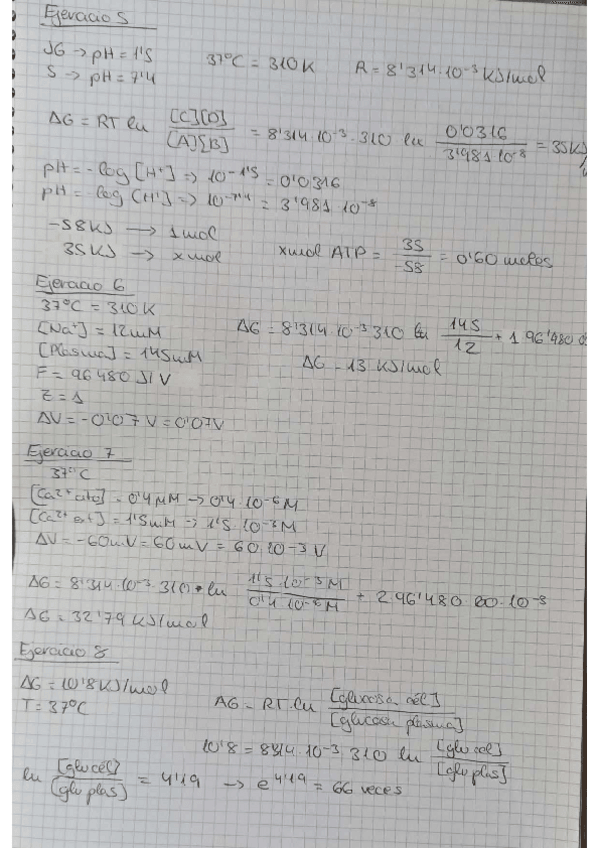 Ejercicio 5
JG → pH = 1'5
37ºC = 310K R = 8'314·10⁻³ KJ/mol
S → pH = 7'4
ΔG = RT ln [C][D] / [A][B] = 8'314·10⁻³·310 ln 0'0316 / 3'981 10⁻⁸ = 35KJ
pH = -log [H⁺] => 10⁻¹'⁵ = 0'0316
pH = -log [H⁺] => 10⁻⁷'⁴ = 3'981 10⁻⁸
-58KJ → 1mol
35KJ → x mol xmol ATP = 35 / -58 = 0'60 moles
Ejercicio 6
37ºC = 310K
[Na⁺] = 12mM ΔG = 8'314·10⁻³ 310 ln 145 / 12 + 1 96'480
[Plasma] = 145mM ΔG = 13 KJ/mol
F = 96480 J/V
Z = 1
ΔV = -0'07 V = 0'07V
Ejercicio 7
37ºC
[Ca²⁺ cito] = 0'4μM → 0'4·10⁻⁶M
[Ca²⁺ ext] = 1'5mM => 1'5·10⁻³M
ΔV = -60mV = 60mV = 60·10⁻³ V
ΔG = 8'314·10⁻³·310 · ln 1'5·10⁻³M / 0'4·10⁻⁶M + 2 96'480 60·10⁻³
ΔG = 32'79 KJ/mol
Ejercicio 8
ΔG = 10'8KJ/mol
T = 37ºC
ΔG = RT·ln [glucosa cél] / [glucosa plasma]
10'8 = 8314·10⁻³·310 ln [glu cel] / [glu plas]
ln [glu cél] / [glu plas] = 4'19 → e⁴'¹⁹ = 66 veces